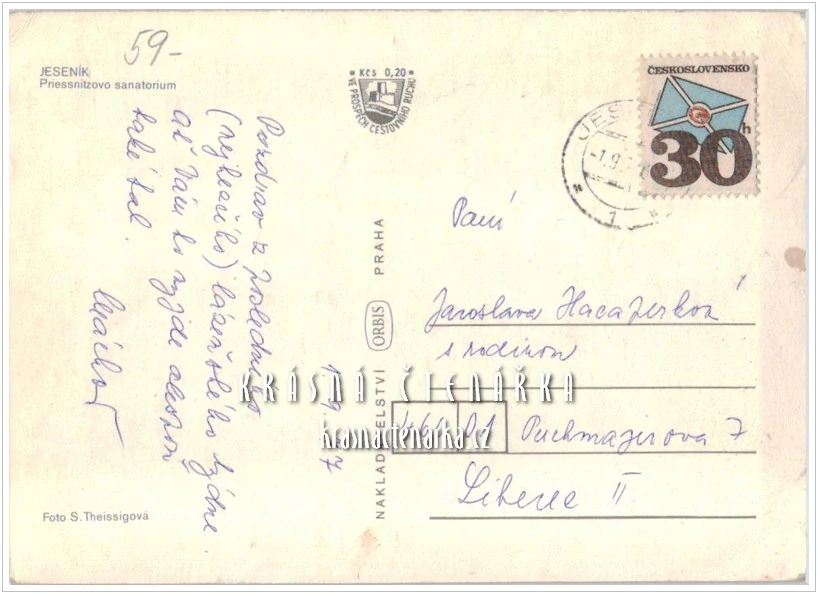 59-
JESENÍK
Priessnitzovo sanatorium
Kčs 0,20
VE PROSPĚCH CESTOVNÍHO RUCHU
ČESKOSLOVENSKO
30h
JES
-1.9.
1
Pozdrav z posledního
(nejhezčího) lázeňského týdne.
ať Vám to vyjde
také tak.
1. 9. 7
NAKLADATELSTVÍ ORBIS PRAHA
Paní
Jaroslava
s rodinou
461 01 Puchmajerova 7
Liberec II
KRÁSNÁ ČTENÁŘKA
krasnactenarka.cz
Foto S. Theissigová